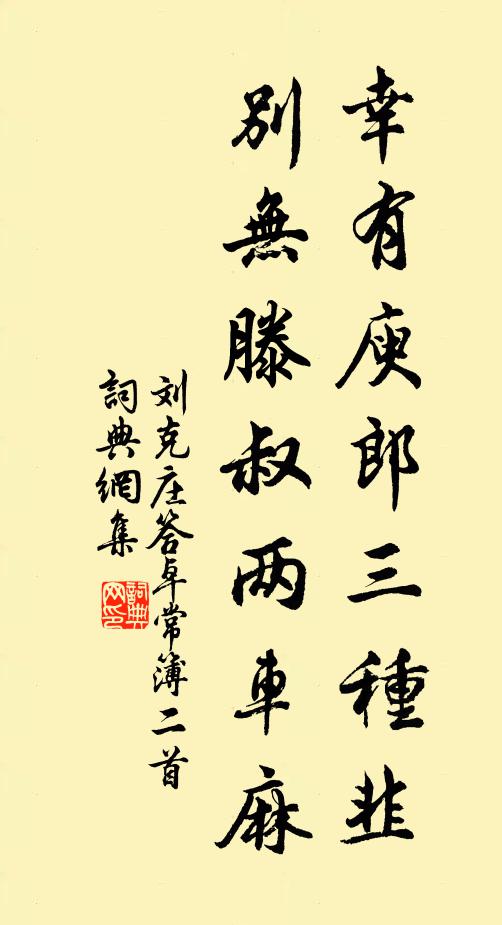 幸有庾郎三種韭
別無滕叔两車麻
刘克庄答卓常簿二首
詞典網集
詞典網印